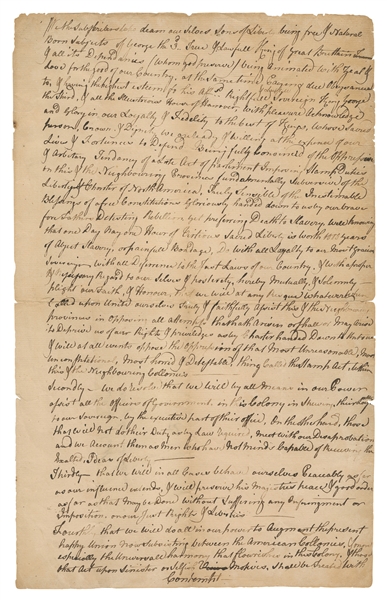 We the Subscribers deam our Selves Sons of Liberty being free & Natural
Born Subjects of George the 3d. True & Lawfull King of Great Brittain France
all its Dependances (whom god preserve) being Animated with Zeal &
Love for the good of our Country, at the Same time paying all due Obeysance
to, & having the highest esteem for his Most Rightfull Sovereign King George
the Third, & all the Illustrious House of Hanover, with pleasure Acknowledge
and Glory in our Loyalty & Fidelity to the best of Kings, whose Sacred
person, Crown, & Dignity we are ready & willing at the expence of our
Lives & Fortunes to Defend. Being fully convinced of the Oppressive
& Arbitrary Tendancy of a Late Act of parliament Imposing Stamp Duties
on this & the Neighbouring Provinces fundamentally Subversive of the
Liberty & Charter of North America, Truly Sencible of the Inestimable
Blessings of a free Constitution gloriously handed down to us by our brave
fore Fathers Detesting Rebellion yet preferring Death to Slavery, well knowing
that one Day Nay one Hour of Virtuous Sacred Liberty is worth years
of Abject Slavery, or painfull Bondage, Do with all Loyalty to our Most Gracious
Sovereign with all Difference to the Just Laws of our Country, & with a proper
Regard to our Selves & posterity, hereby Mutually, & Solemnly
plight our Faith, & Honour, that we will at any Request whatever
Called upon Unite ourselves Fairly & faithfully Assist this & the Neighbouring
provinces in Opposing all attempts that hath Arisen or shall be Made
to Deprive us of our Rights & priviledge as by Charter handed Down to us
& will at all events oppose the Oppression of that Most Unreasonable, Most
unconstitutional, Most horrid & Detestable thing Called the Stamp Act, within
this & the Neighbouring Collonies.
Secondly - We do Resolve that we will by all Means in our Power
assist all the Officers of Government in this Colony in Shewing their Loyalty
to our Sovereign, by the execution part of their office. On the other hand, those
that will not do their Duty as by Law Required, meet with our Disaprobation
and we Account them as Men who have not Minds Capable of Receiving the
Exalted Ideas of Liberty
Thirdly - that we will in all Cases behave ourselves Peaceably as far
as our influence extends, & will preserve his Majesties peace & good order
as far as that may be Done without Suffering any Infringment or
Imposition, on our Just Rights & Liberties
Fourthly that we will do all in our power to Augment the present
happy Union Now Subsisting between the American Collonies, & more
especially the Universal harmony that flourishes in this Colony, & those
that Act upon Sinister or Selfish Motives, shall be treated with
Contempt.